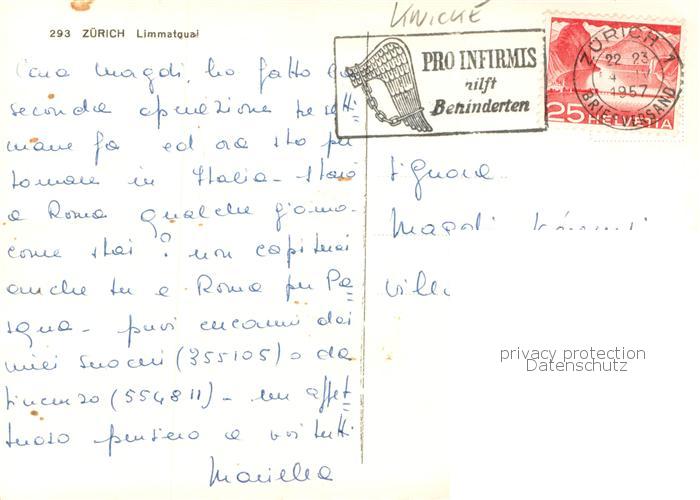 293 ZÜRICH Limmatquai
Cara Magdi, ho fatto la
seconda operazione tre setti=
mane fa ed ora sto per
tornare in Italia - starò
a Roma qualche giorno.
come stai? non capiterai
anche tu a Roma per Pa=
squa - puoi cercarmi dai
miei suoceri (355105) o da
(554811) - un affet=
tuoso pensiero a voi tutti
Mariella
PRO INFIRMIS
hilft
Behinderten
ZÜRICH 1
22 23
1957
BRIEFVERSAND
25 HELVETIA
Signora
Magdi
Ville
privacy protection
Datenschutz